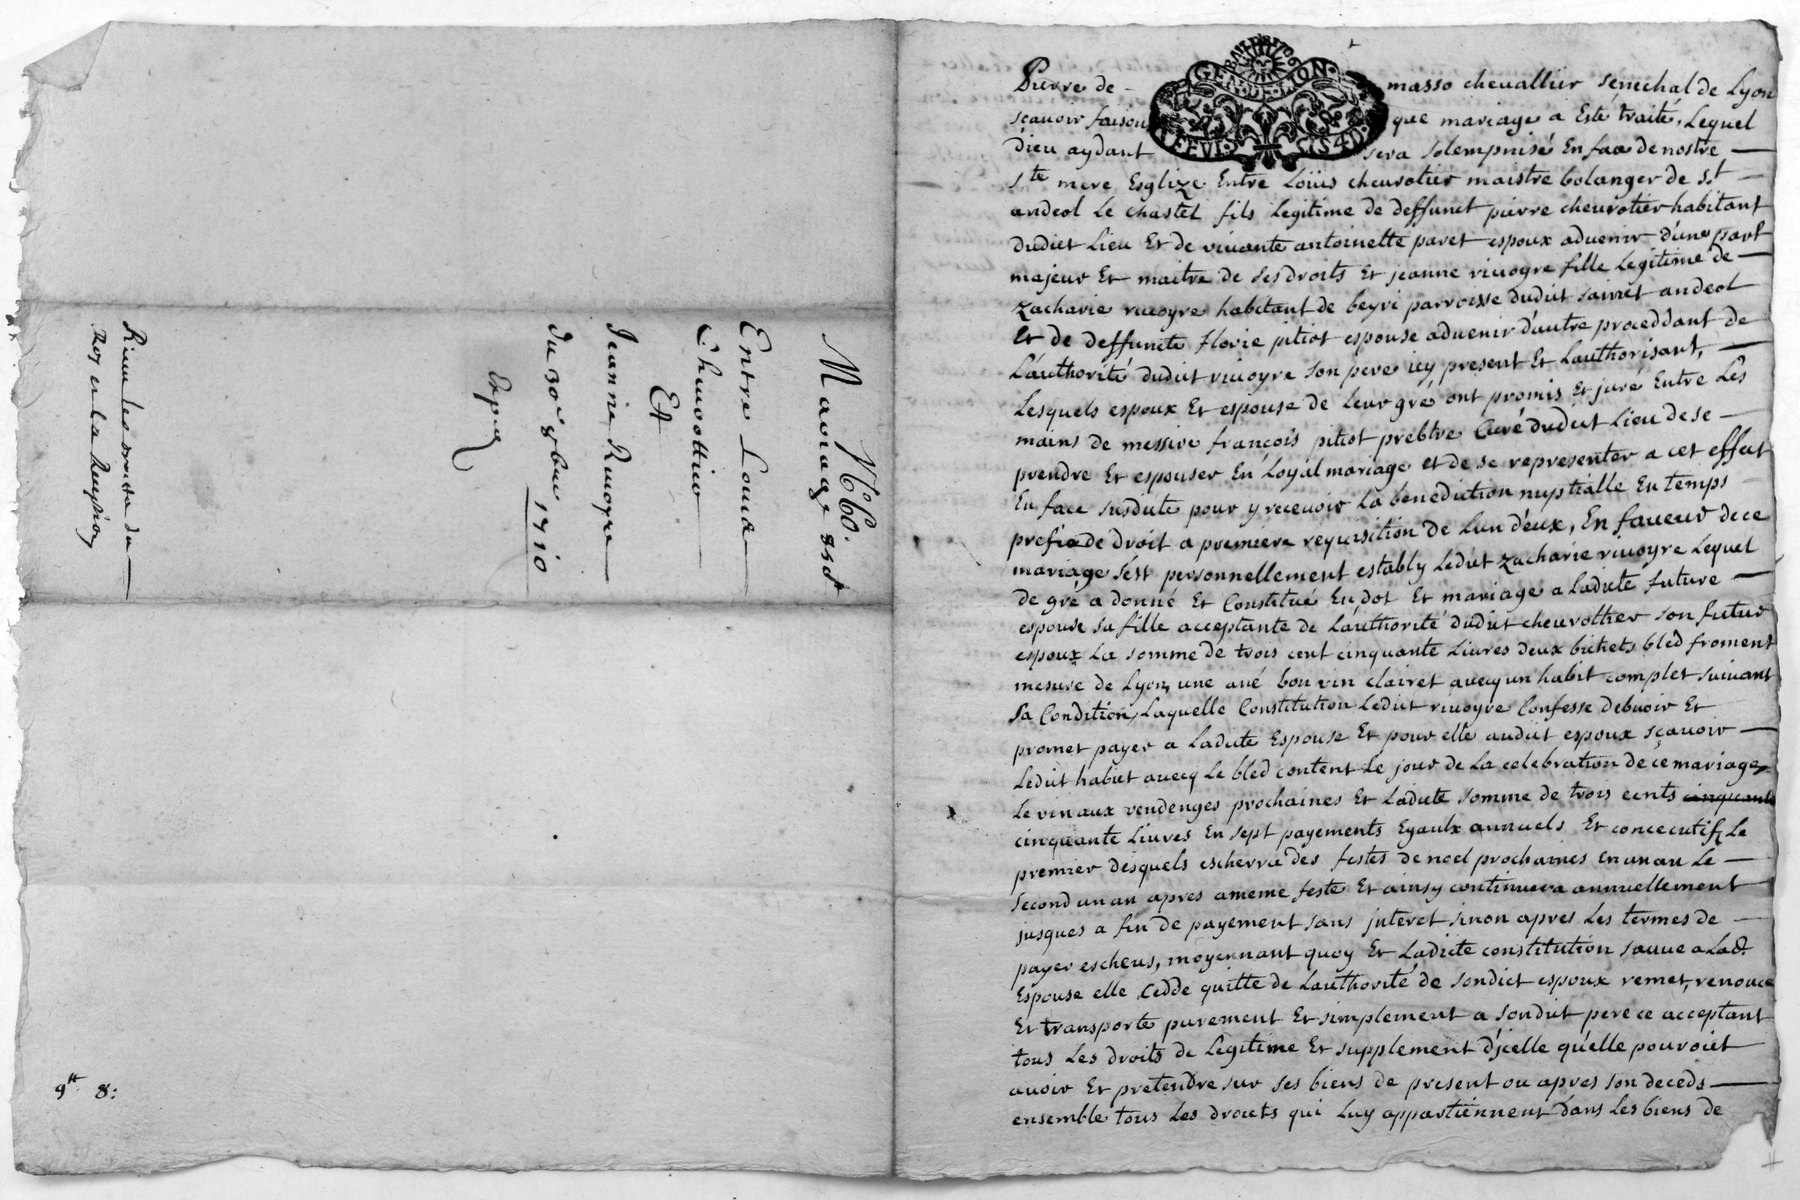 N° 60.
Mariage
Entre Louis
Chevottier
Et
Jeanne Rivoyre
du 30e 8bre 1710
Exp
9tt 8:
BAVDRI
GEN·DE·LION
Pierre de - masso chevallier senechal de Lyon
scavoir faisons que mariage a Esté traité, Lequel
Dieu aydant sera solempnisé En face de nostre
ste mere Esglize Entre Loüis chevrotier maistre bolanger de st
andeol Le chastel fils legitime de deffunct pierre chevrotier habitant
dudict Lieu Et de vivante antoinette paret espoux advenir d'une part
majeur Et maitre de ses droits Et jeanne rivoyre fille legitime de
zacharie rivoyre habitant de beyri parroisse dudict sainct andeol
Et de deffuncte florie pitiot espouse advenir d'autre proceddant de
L'authorité dudict rivoyre son pere icy present Et L'authorisant,
Lesquels espoux Et espouse de leur gre ont promis Et juré Entre Les
mains de messire françois pitiot prebtre Curé dudict Lieu de se
prendre Et espouser En Loyal mariage et de se representer a cet effect
En face susdicte pour y recevoir La benediction nuptialle En temps
prefix de droit a premiere requisition de L'un d'eux, En faveur de ce
mariage s'est personnellement estably Ledict zacharie rivoyre Lequel
de gré a donné Et Constitué En dot Et mariage a Ladicte future
espouse sa fille acceptante de L'authorité dudict chevrottier son futur
espoux La somme de trois cent cinquante Livres deux bichets bled froment
mesure de Lyon, une ané bon vin clairet avecq un habit complet suivant
sa Condition, Laquelle Constitution Ledict rivoyre Confesse debvoir Et
promet payer a Ladicte Espouse Et pour elle audict espoux sçavoir
Ledict habict avecq Le bled content Le jour de La celebration de ce mariage,
Le vin aux vendenges prochaines Et Ladicte somme de trois cents cinquante
cinquante Livres En sept payements Egaulx annuels Et concecutifs Le
premier desquels escherra des festes de noel prochaines en un an Le
second un an apres a meme feste Et ainsy continuera annuellement
jusques a fin de payement sans jnteret sinon apres Les termes de
payer escheus, moyennant quoy Et Ladicte constitution sauve a Lad.
Espouse elle cedde quitte de L'authorité de sondict espoux remet, renonce
Et transporte purement Et simplement a sondict pere ce acceptant
tous Les droits de Legitime Et supplement d'jcelle qu'elle pouroict
avoir Et pretendre sur ses biens de present ou apres son deceds
ensemble tous Les droicts qui Luy appartiennent dans Les biens de